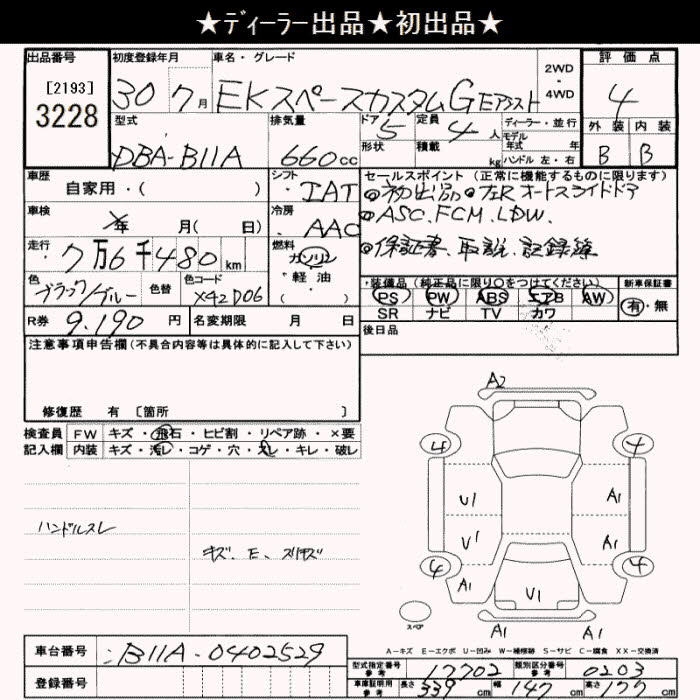 ★ディーラー出品★初出品★
出品番号 初度登録年月 車名・グレード 2WD・4WD 評価点
[2193]
3228
30 7月 EKスペースカスタムGEアシスト 4
型式 排気量 ドア 定員 ディーラー・並行 外装 内装
DBA-B11A 660cc 5 4人 モデル年式 年 B B
形状 積載 kg ハンドル 左・右
車歴 シフト セールスポイント（正常に機能するものに限ります）
自家用・（ ） IAT ◎初出品◎左Rオートスライドドア
車検 年 月（ 日） 冷房 AAC ◎ASC.FCM.LDW.
走行 7万6千480km 燃料 ガソリン・軽油・（ ） ◎保証書.取説.記録簿
色 ブラック/ブルー 色替 色コード X42D06
・装備品（純正品に限り○をつけてください） 新車保証書
PS PW ABS エアB AW 有・無
SR ナビ TV カワ
R券 9.190円 名変期限 月 日 後日品
注意事項申告欄（不具合内容等は具体的に記入して下さい）
修復歴 有 〔箇所 〕
検査員 FW キズ・飛石・ヒビ割・リペア跡・×要
記入欄 内装 キズ・汚レ・コゲ・穴・スレ・キレ・破レ
ハンドルスレ
キズ、E、スリキズ
A2
4 4
U1 A1
U1 A1
4 4
A1 U1 A1
スペア
A1
A－キズ E－エクボ U－凹み W－補修跡 S－サビ C－腐食 XX－交換済
車台番号 B11A-0402529
登録番号
型式指定番号 参考 17702 類別区分番号 参考 0203
車庫証明用 参考 長さ 339cm 幅 147cm 高さ 177cm